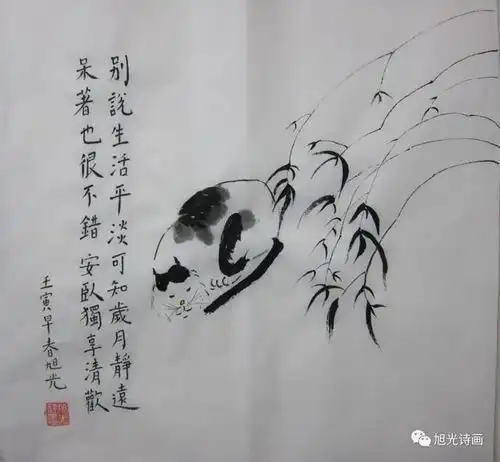 别說生活平淡可知歲月靜遠
呆著也很不錯安臥獨享清歡
壬寅早春旭光
旭光诗画